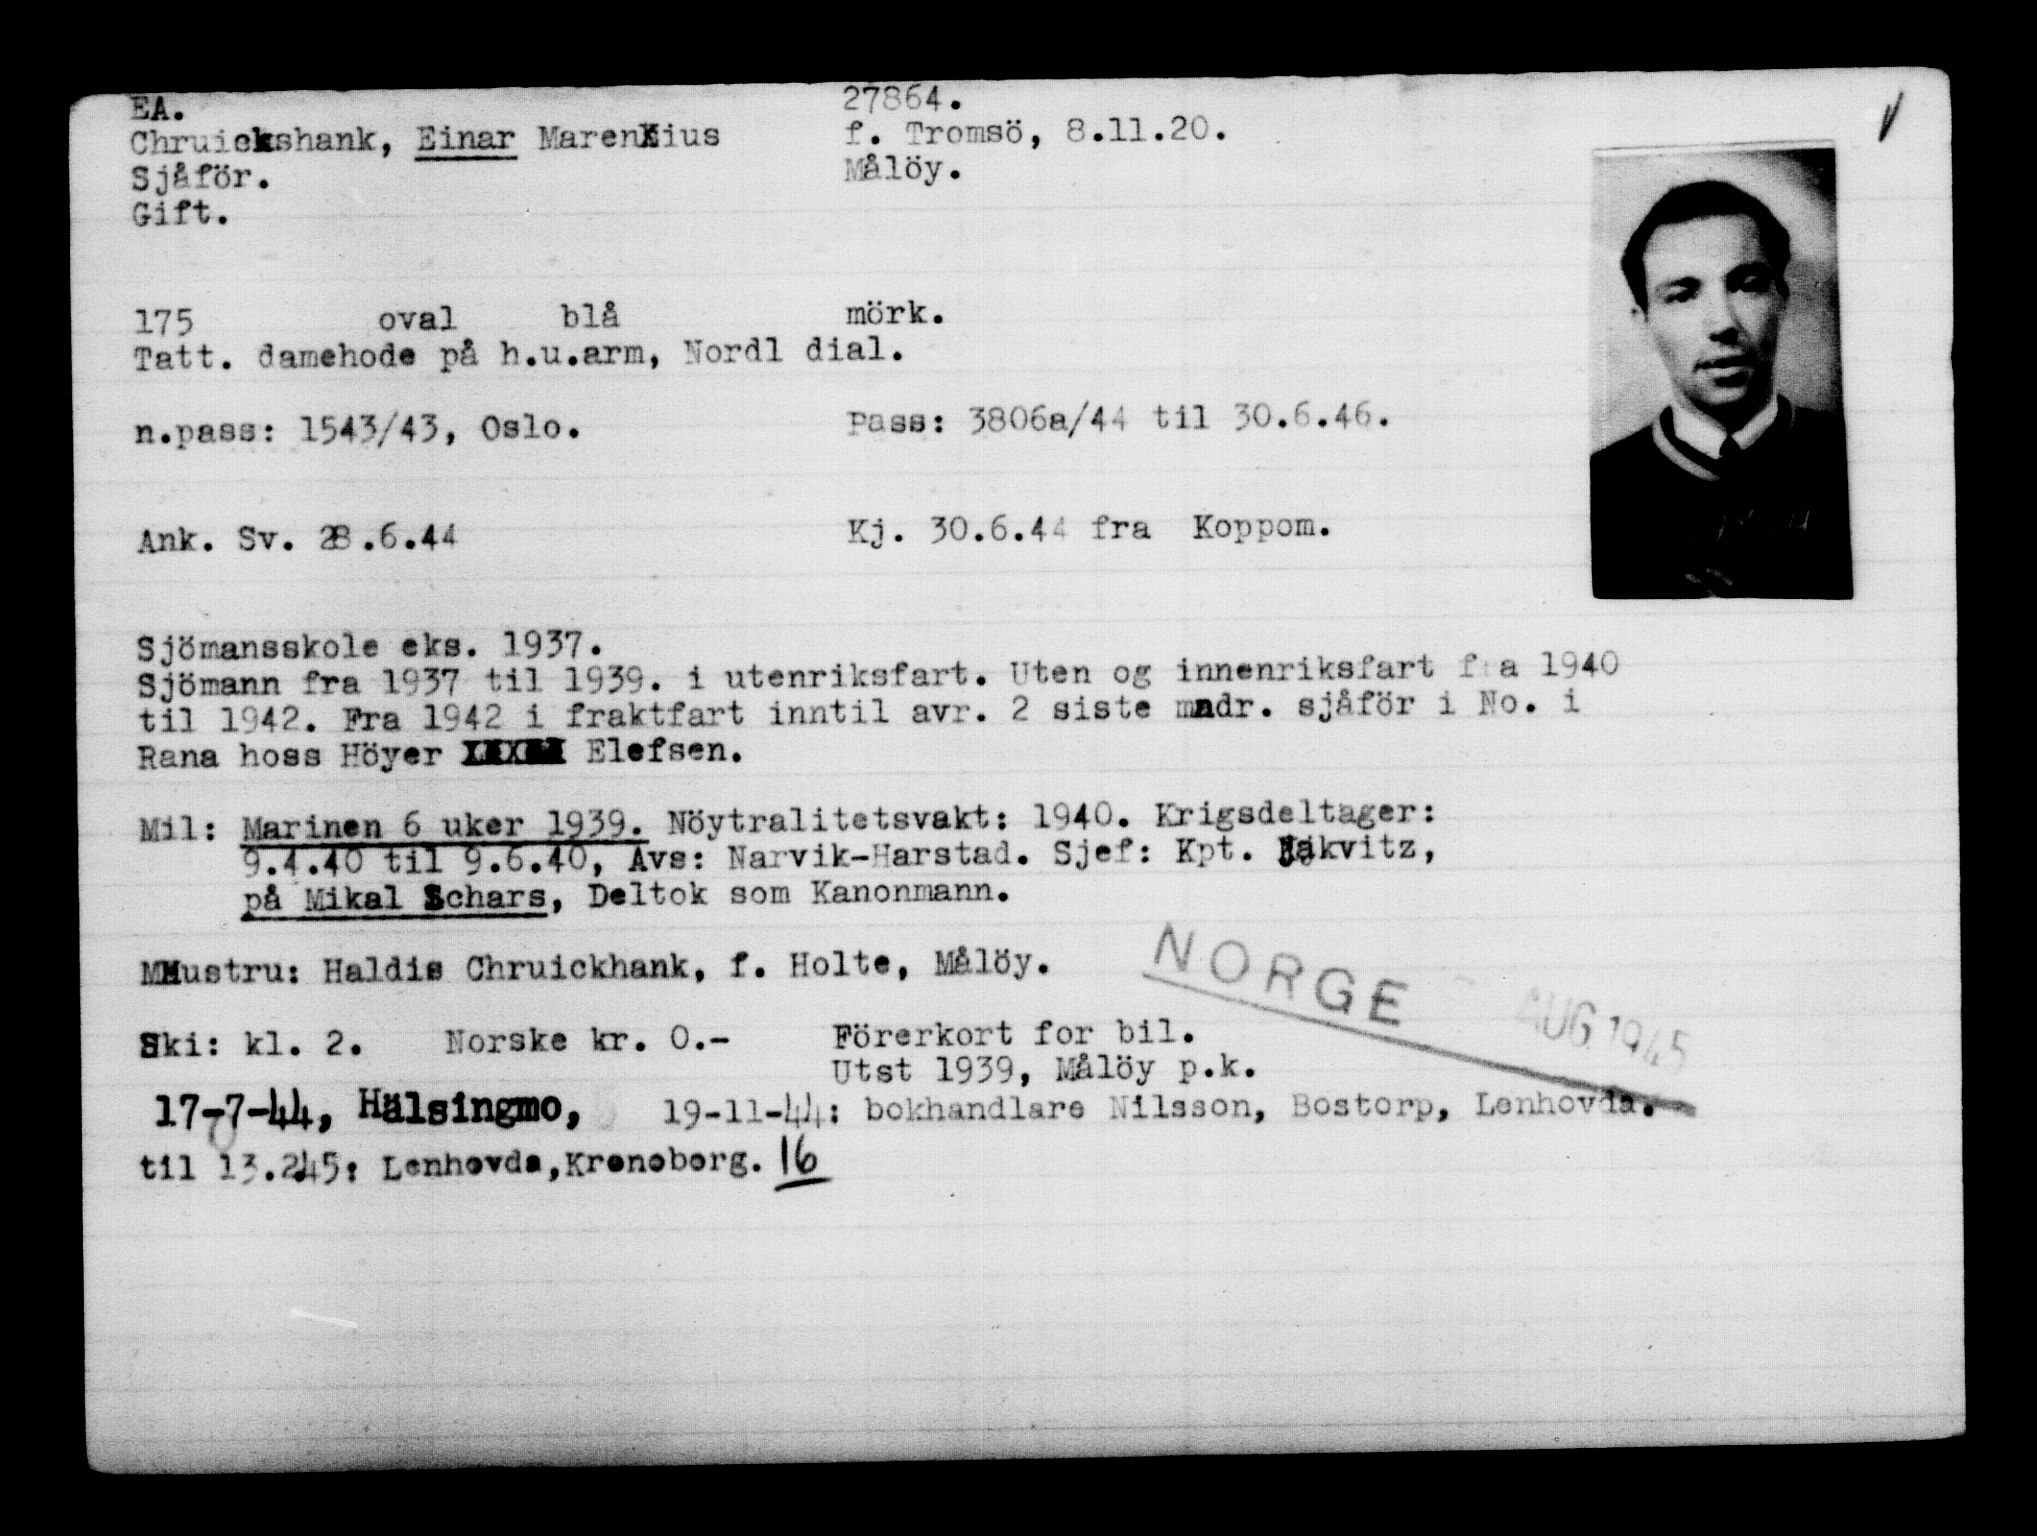 EA. 27864.
Chruickshank, Einar Marenius f. Tromsö, 8.11.20.
Sjåför. Målöy.
Gift.
175 oval blå mörk.
Tatt. damehode på h.u.arm, Nordl dial.
n.pass: 1543/43, Oslo. Pass: 3806a/44 til 30.6.46.
Ank. Sv. 28.6.44 Kj. 30.6.44 fra Koppom.
Sjömansskole eks. 1937.
Sjömann fra 1937 til 1939. i utenriksfart. Uten og innenriksfart fra 1940
til 1942. Fra 1942 i fraktfart inntil avr. 2 siste mndr. sjåför i No. i
Rana hoss Höyer Elefsen.
Mil: Marinen 6 uker 1939. Nöytralitetsvakt: 1940. Krigsdeltager:
9.4.40 til 9.6.40, Avs: Narvik-Harstad. Sjef: Kpt.
på Mikal Schars, Deltok som Kanonmann.
Hustru: Haldis Chruickhank, f. Holte, Målöy.
NORGE AUG 1945
Ski: kl. 2. Norske kr. 0.- Förerkort for bil.
Utst 1939, Målöy p.k.
17-7-44, Hälsingmo, 19-11-44: bokhandlare Nilsson, Bostorp, Lenhovda.
til 13.2.45: Lenhovda, Kronoberg. 16